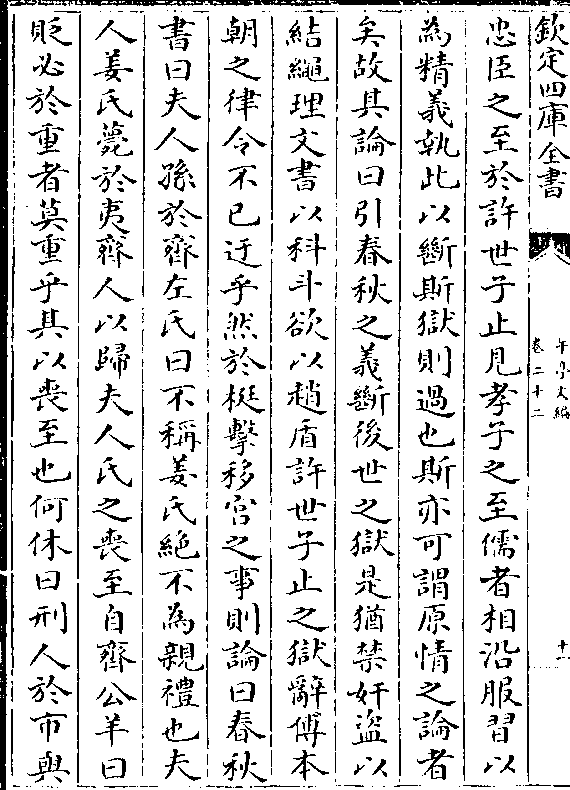 欽定四庫全書
午亭文編
卷二十二
十一
忠臣之至於許世子止見孝子之至儒者相沿服習以
為精義執此以斷斯獄則過也斯亦可謂原情之論者
矣故其論曰引春秋之義斷後世之獄是猶禁奸盜以
結繩理文書以科斗欲以趙盾許世子止之獄辭傅本
朝之律令不已迂乎然於梃擊移宮之事則論曰春秋
書曰夫人孫於齊左氏曰不稱姜氏絕不為親禮也夫
人姜氏薨於夷齊人以歸夫人氏之喪至自齊公羊曰
貶必於重者莫重乎其以喪至也何休曰刑人於市與